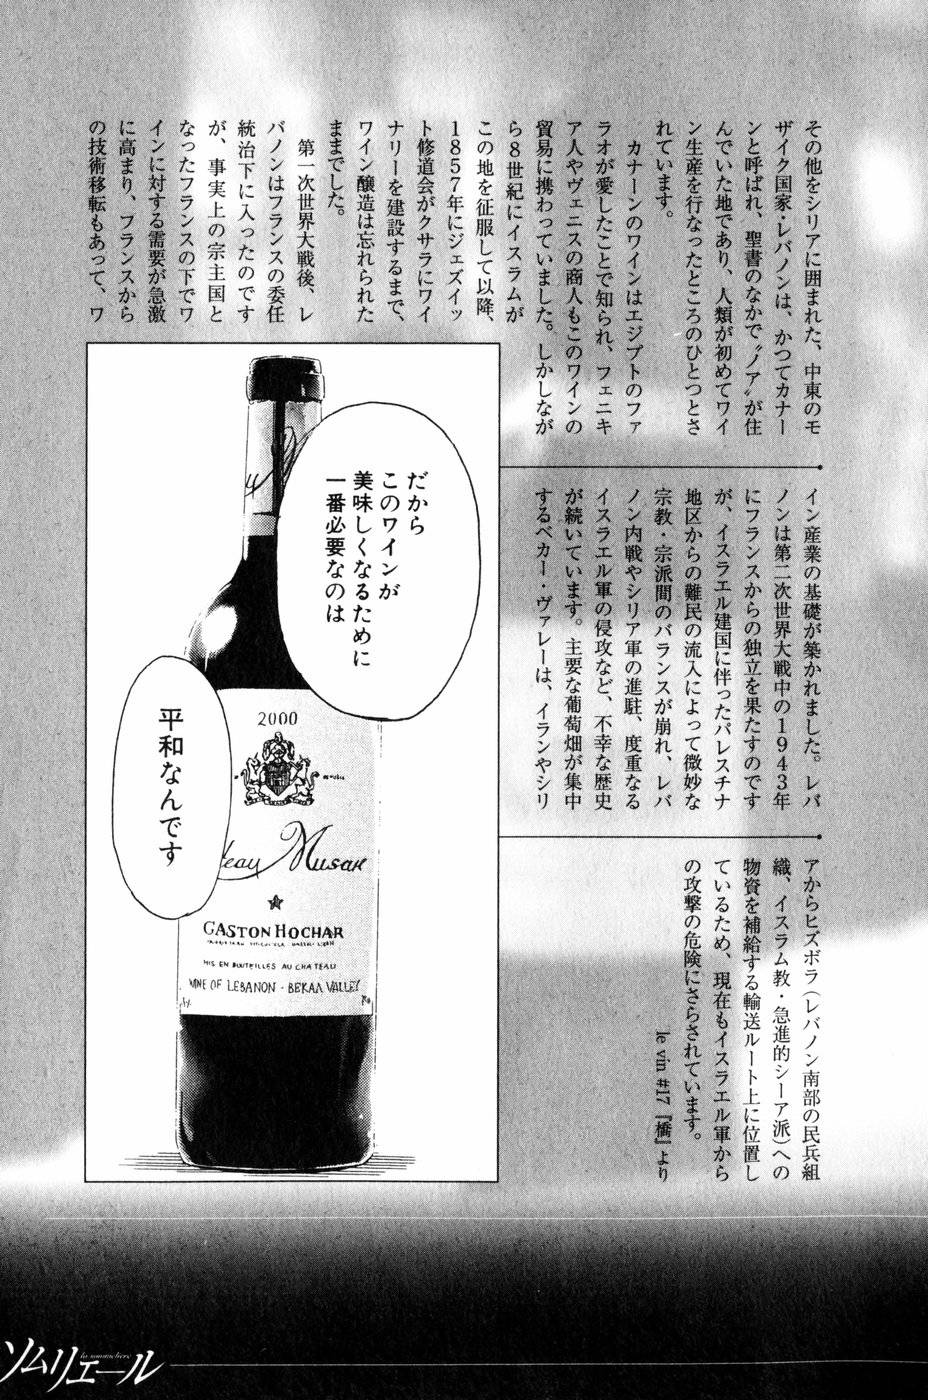 その他をシリアに囲まれた、中東のモ
ザイク国家・レバノンは、かつてカナー
ンと呼ばれ、聖書のなかで〝ノア〟が住
んでいた地であり、人類が初めてワイ
ン生産を行なったところのひとつとさ
れています。
カナーンのワインはエジプトのファ
ラオが愛したことで知られ、フェニキ
ア人やヴェニスの商人もこのワインの
貿易に携わっていました。しかしなが
ら8世紀にイスラムが
この地を征服して以降、
1857年にジェズイッ
ト修道会がクサラにワイ
ナリーを建設するまで、
ワイン醸造は忘れられた
ままでした。
第一次世界大戦後、レ
バノンはフランスの委任
統治下に入ったのです
が、事実上の宗主国と
なったフランスの下でワ
インに対する需要が急激
に高まり、フランスから
の技術移転もあって、ワ
イン産業の基礎が築かれました。レバ
ノンは第二次世界大戦中の1943年
にフランスからの独立を果たすのです
が、イスラエル建国に伴ったパレスチナ
地区からの難民の流入によって微妙な
宗教・宗派間のバランスが崩れ、レバ
ノン内戦やシリア軍の進駐、度重なる
イスラエル軍の侵攻など、不幸な歴史
が続いています。主要な葡萄畑が集中
するベカー・ヴァレーは、イランやシリ
アからヒズボラ(レバノン南部の民兵組
織、イスラム教・急進的シーア派)への
物資を補給する輸送ルート上に位置し
ているため、現在もイスラエル軍から
の攻撃の危険にさらされています。
le vin #17『橋』より
だから
このワインが
美味しくなるために
一番必要なのは
平和なんです
2000
teau Musar
GASTON HOCHAR
MIS EN BOUTEILLES AU CHATEAU
WINE OF LEBANON - BEKAA VALLEY
ソムリエール
la sommelière